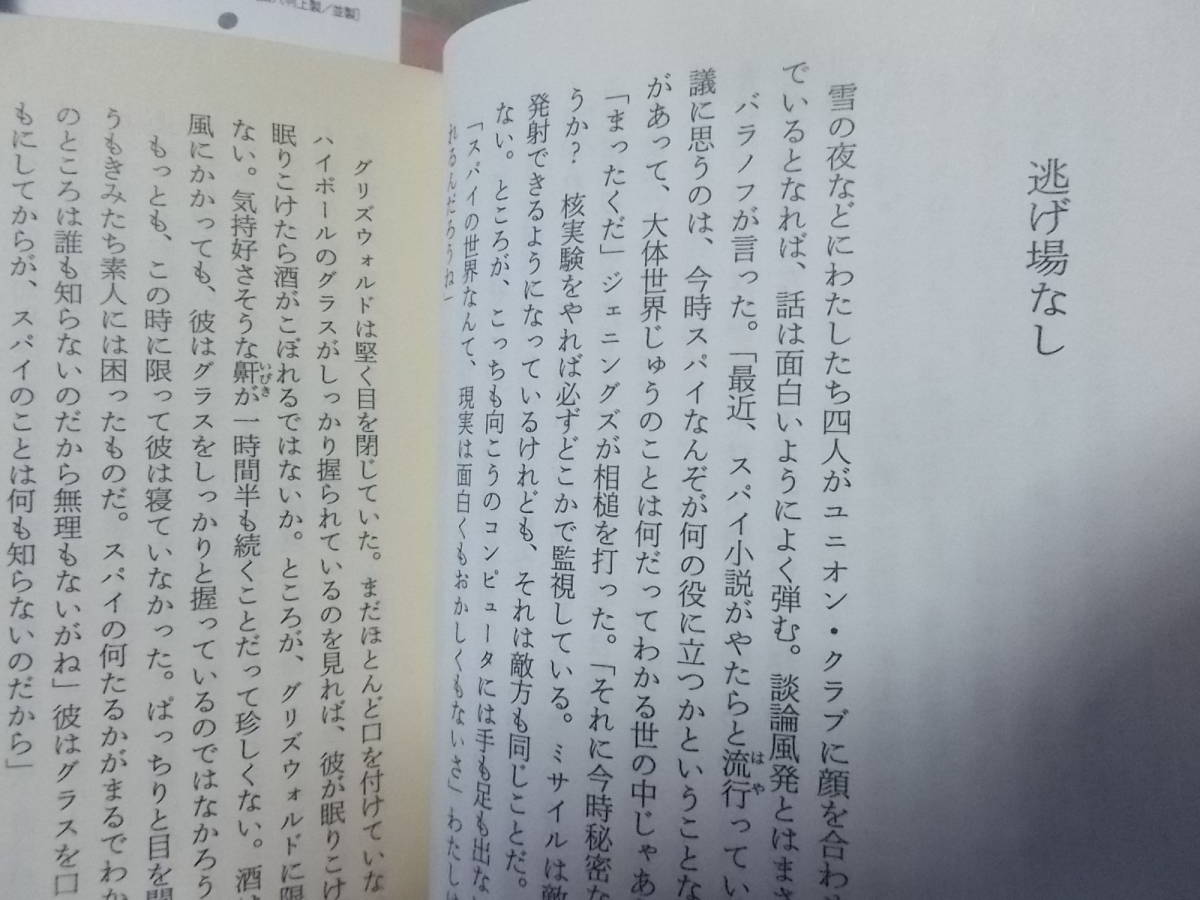 逃げ場なし
雪の夜などにわたしたち四人がユニオン・クラブに顔を合わせ
でいるとなれば、話は面白いようによく弾む。談論風発とはまさ
バラノフが言った。「最近、スパイ小説がやたらと流行ってい
議に思うのは、今時スパイなんぞが何の役に立つかということな
があって、大体世界じゅうのことは何だってわかる世の中じゃあ
「まったくだ」ジェニングズが相槌を打った。「それに今時秘密な
うか? 核実験をやれば必ずどこかで監視している。ミサイルは敵
発射できるようになっているけれども、それは敵方も同じことだ。
ない。ところが、こっちも向こうのコンピュータには手も足も出な
「スパイの世界なんて、現実は面白くもおかしくもないさ」わたしは
れるんだろうね」
グリズウォルドは堅く目を閉じていた。まだほとんど口を付けていな
ハイボールのグラスがしっかり握られているのを見れば、彼が眠りこけ
眠りこけたら酒がこぼれるではないか。ところが、グリズウォルドに限
ない。気持好さそうな鼾が一時間半も続くことだって珍しくない。酒は
風にかかっても、彼はグラスをしっかりと握っているのではなかろう
もっとも、この時に限って彼は寝ていなかった。ぱっちりと目を開
うもきみたち素人には困ったものだ。スパイの何たるかがまるでわか
のところは誰も知らないのだから無理もないがね」彼はグラスを口
もにしてからが、スパイのことは何も知らないのだから」